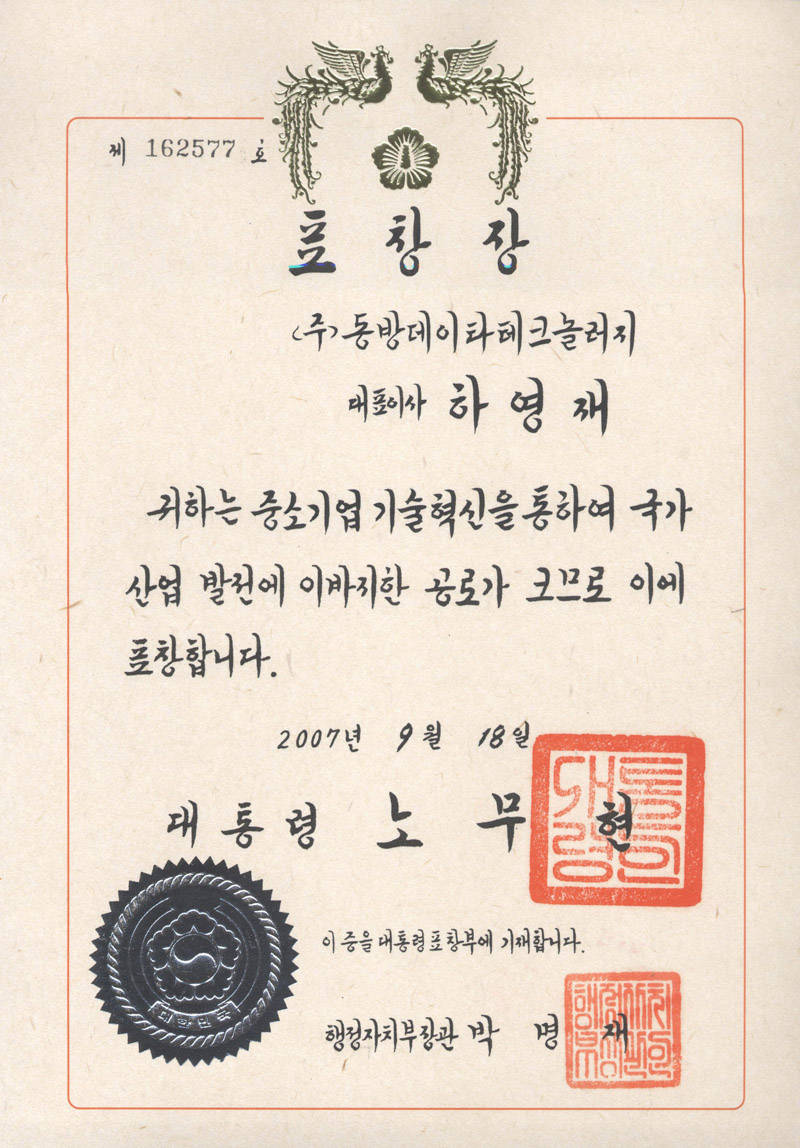 제 162577 호
표창장
(주)동방데이타테크놀러지
대표이사 하영재
귀하는 중소기업 기술혁신을 통하여 국가
산업 발전에 이바지한 공로가 크므로 이에
표창합니다.
2007년 9월 18일
대통령 노무현
이 증을 대통령표창부에 기재합니다.
행정자치부장관 박명재
대한민국